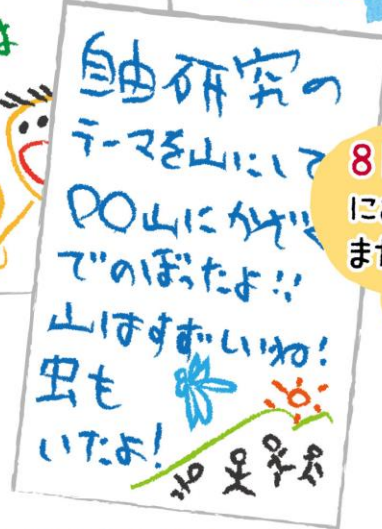 自由研究の
テーマを山にして
〇〇山にかぞく
でのぼったよ!!
山はすずしいね!
虫も
いたよ!
8
にお
ます